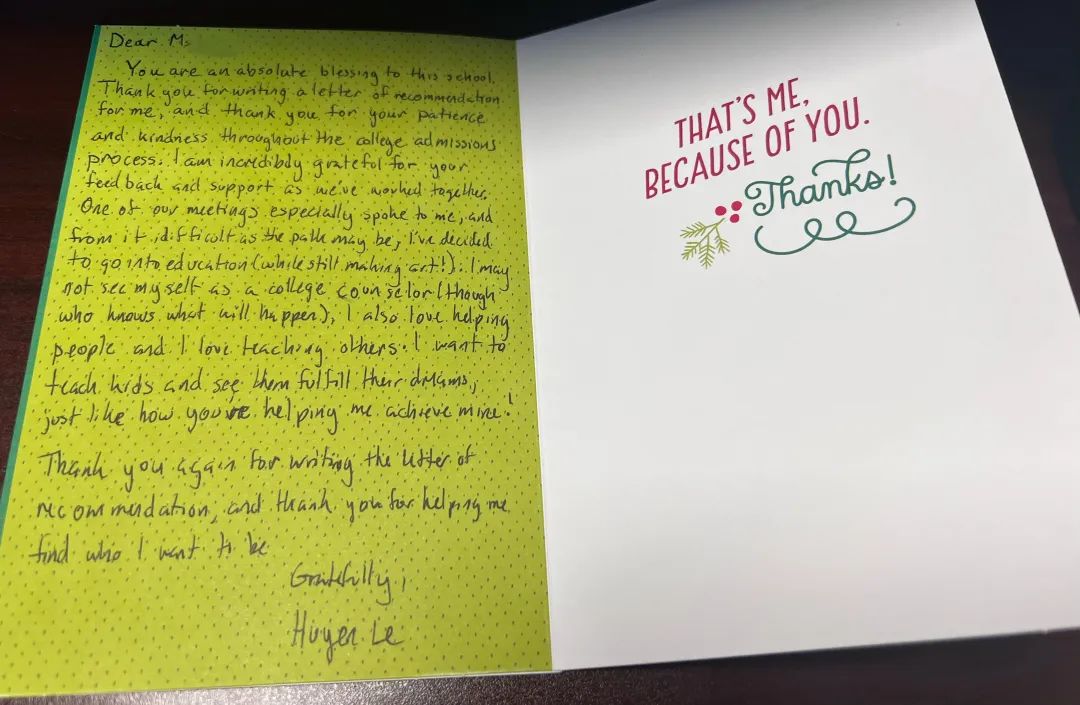 Dear M.
You are an absolute blessing to this school.
Thank you for writing a letter of recommendation
for me, and thank you for your patience
and kindness throughout the college admissions
process. I am incredibly grateful for your
feedback and support as we've worked together.
One of our meetings especially spoke to me, and
from it, difficult as the path may be, I've decided
to go into education (while still making art!). I may
not see myself as a college counselor (though
who knows what will happen), I also love helping
people and I love teaching others. I want to
teach kids and see them fulfill their dreams,
just like how you're helping me achieve mine!
Thank you again for writing the letter of
recommendation, and thank you for helping me
find who I want to be
Gratefully,
Huyen Le
THAT'S ME,
BECAUSE OF YOU.
Thanks!